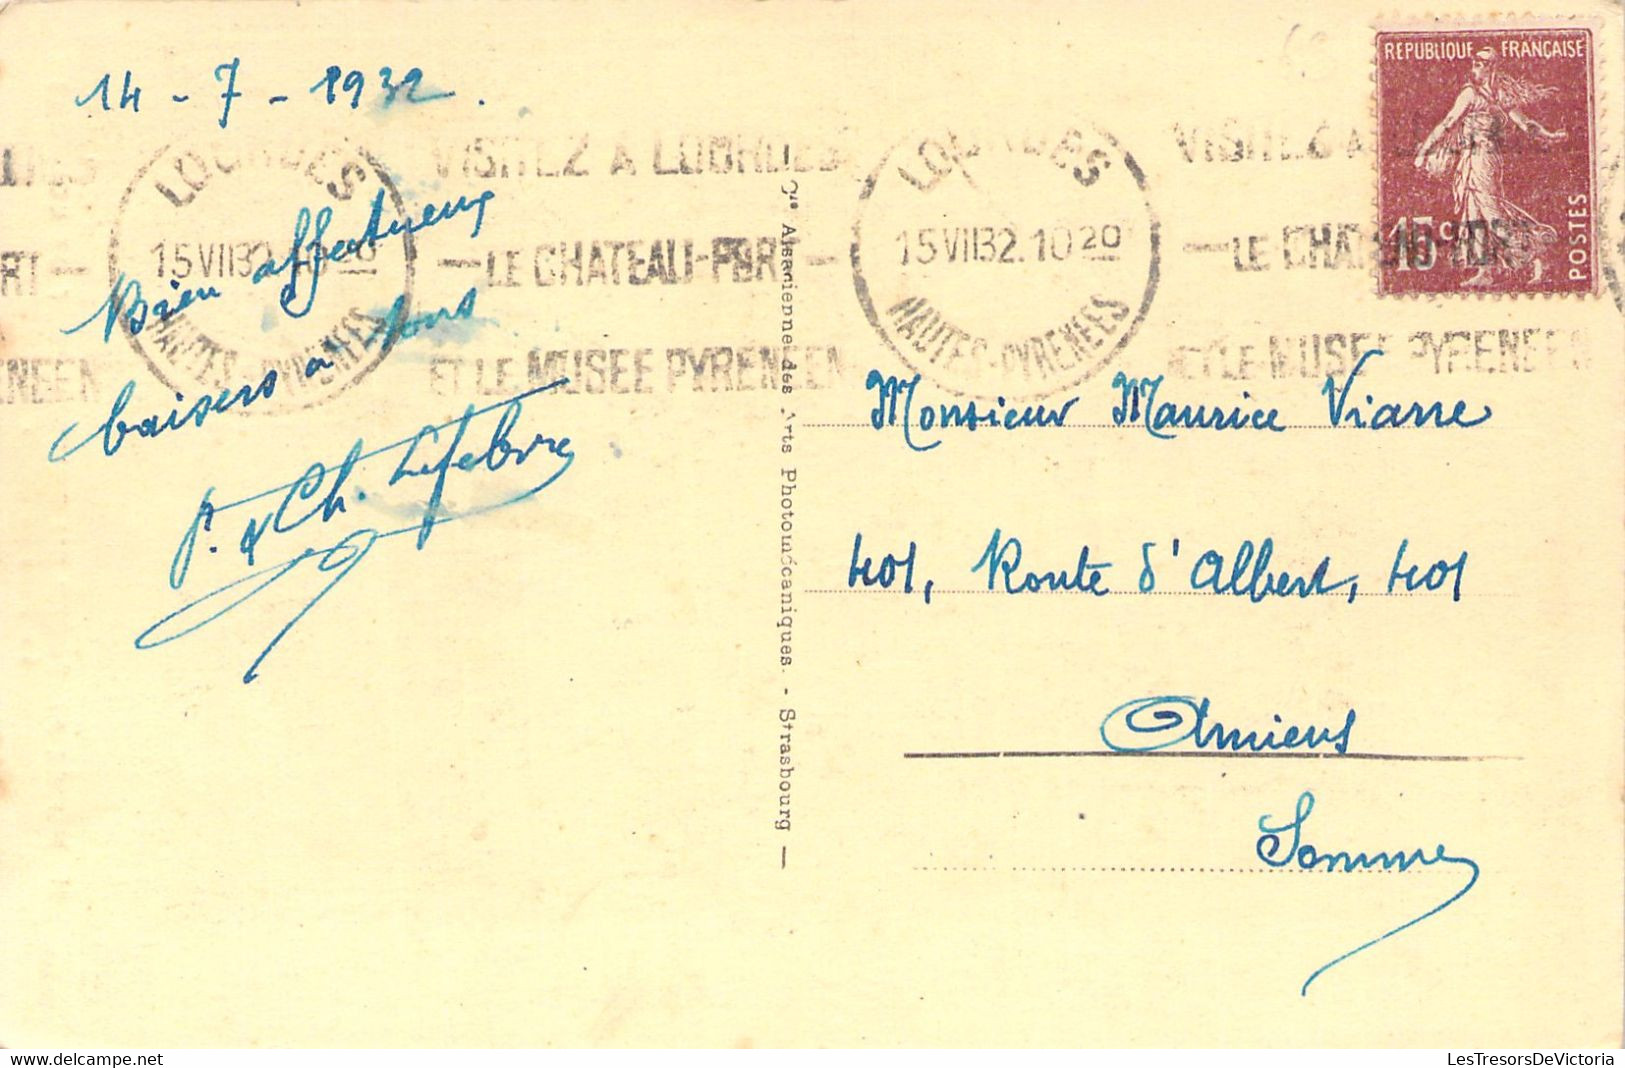 14 - 7 - 1932.
Bien affectueux
baisers à tous
P. & Ch. Lefebvre
LOURDES
15 VII 32. 10 20
HAUTES-PYRENEES
VISITEZ A LOURDES
— LE CHATEAU-FORT —
ET LE MUSEE PYRENEEN
LOURDES
15 VII 32. 10 20
HAUTES-PYRENEES
VISITEZ A LOURDES
— LE CHATEAU-FORT
ET LE MUSEE PYRENEEN
RÉPUBLIQUE FRANÇAISE
15 c.
POSTES
Cie Alsacienne des Arts Photomécaniques. - Strasbourg —
Monsieur Maurice Viarre
401, Route d'Albert, 401
Amiens
Somme
LesTresorsDeVictoria